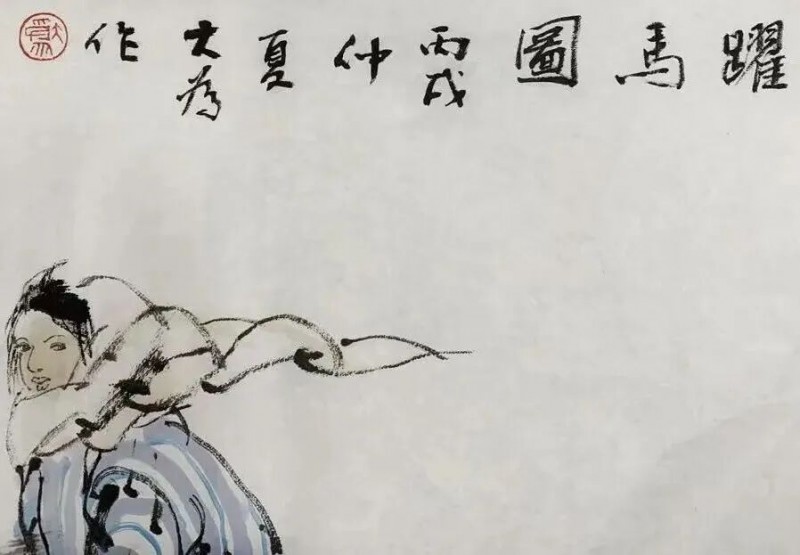 躍馬圖
丙戌仲夏
大為作